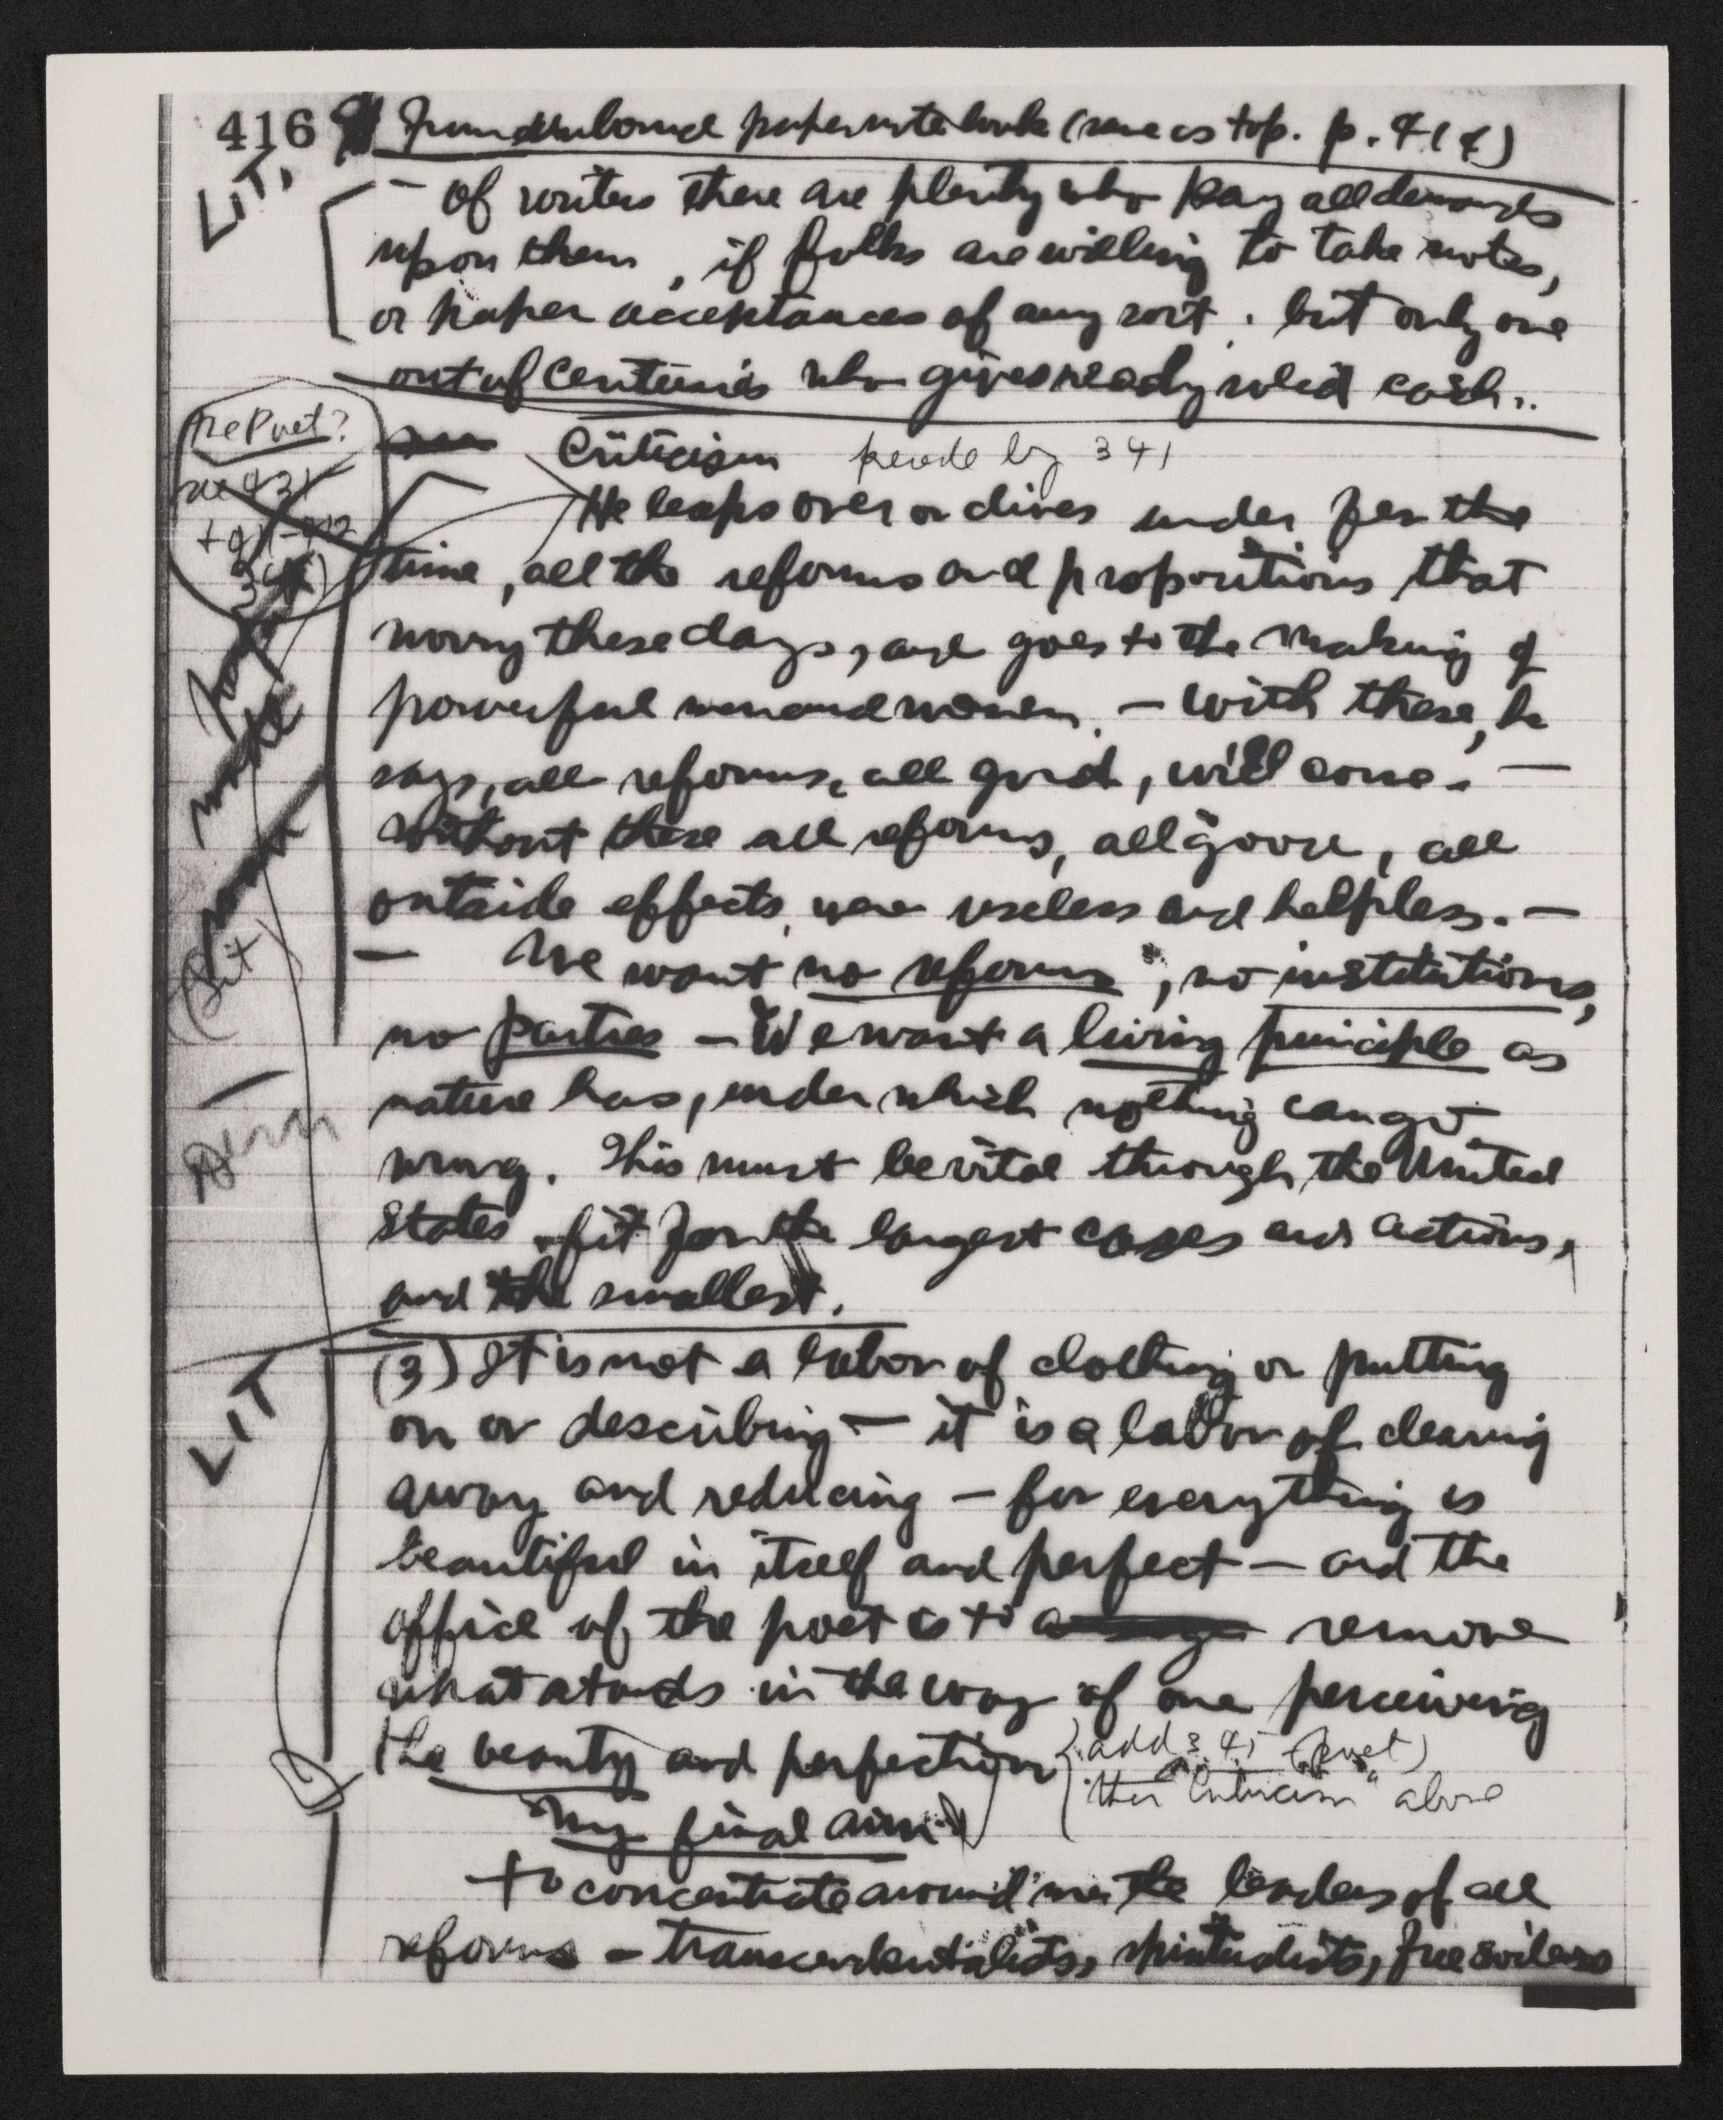 416 From unbound paper note book (same as top. p. 414)
LIT.
- Of writers there are plenty who pay all demands
upon them, if folks are willing to take notes,
or paper acceptances of any sort. but only one
out of centuries who gives ready solid cash..
re Poet?
Criticism precede by 341
He leaps over or dives under for the
time, all the reforms and propositions that
worry these days, and goes to the making of
powerful men and women. - With these, he
says, all reforms, all good, will come. -
Without these all reforms, all good, all
outside effects, were useless and helpless. -
- We want no reforms, no institutions,
no parties - We want a living principle as
nature has, under which nothing can go
wrong. This must be vital through the United
States, fit for the largest cases and actions,
and the smallest.
LIT
(3) It is not a labor of clothing or putting
on or describing - it is a labor of clearing
away and reducing - for everything is
beautiful in itself and perfect - and the
office of the poet is to remove
what stands in the way of one perceiving
the beauty and perfection
add 341 (poet)
then "Criticism" above
My final aim
To concentrate around me the leaders of all
reforms - transcendentalists, spiritualists, free soilers